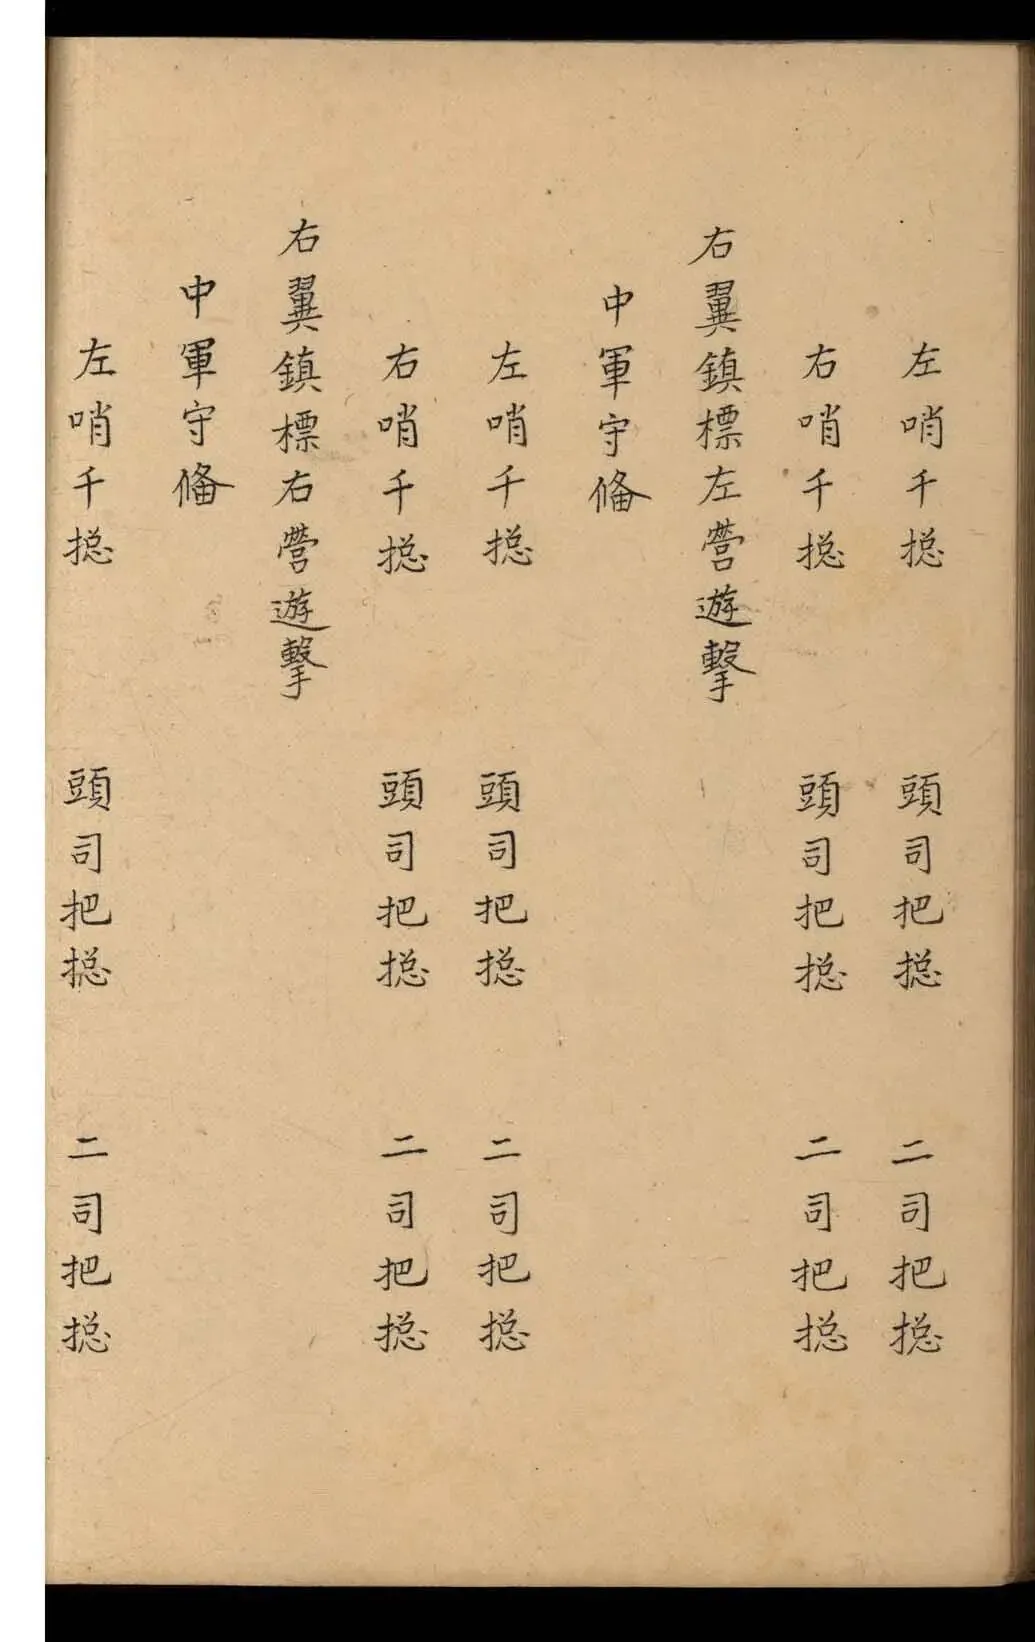 左哨千揔 頭司把揔 二司把揔
右哨千揔 頭司把揔 二司把揔
右翼鎮標左営遊擊
中軍守俻
左哨千揔 頭司把揔 二司把揔
右哨千揔 頭司把揔 二司把揔
右翼鎮標右営遊擊
中軍守俻
左哨千揔 頭司把揔 二司把揔